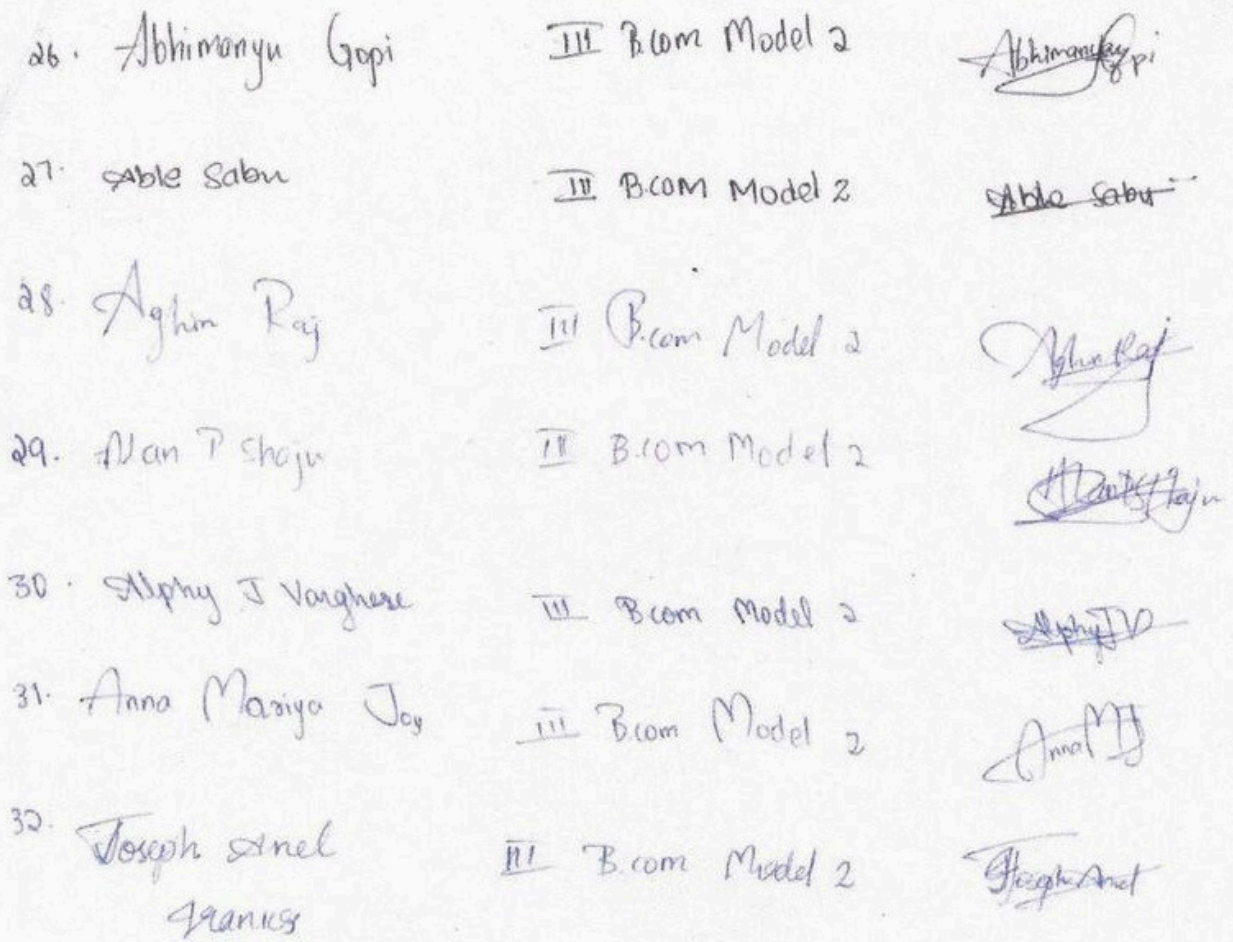 26. Abhimanyu Gopi III B.com Model 2 Abhimanyu Gopi
27. Able Sabu III B.com Model 2 Able Sabu
28. Aghin Raj III B.com Model 2 Aghin Raj
29. Alan P Shaju III B.com Model 2
30. Alphy J Varghese III B.com Model 2 Alphy J V
31. Anna Mariya Joy III B.com Model 2 Anna M J
32. Joseph Anel III B.com Model 2 Joseph Anel